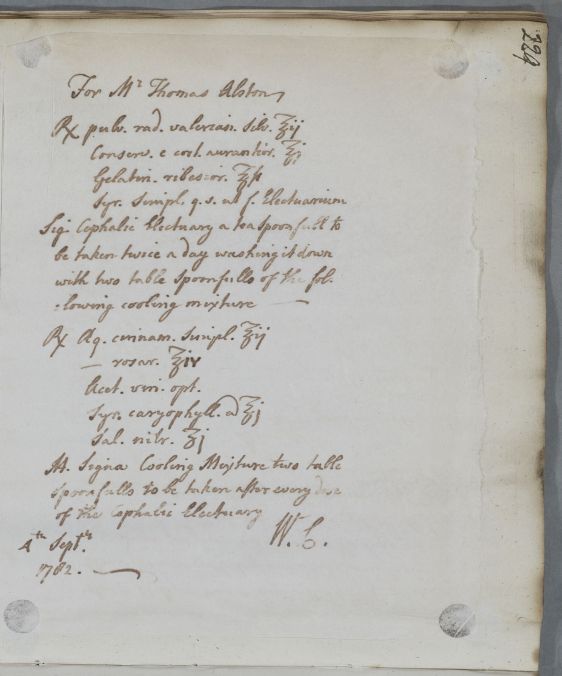 229
For Mr Thomas Alston
℞ pulv. rad. valerian. silv. ℥ij
Conserv. e cort. aurantior. ℥j
Gelatin. ribesior. ℥ß
Syr. Simpl. q.s. ut f. Electuarium
Sig. Cephalic Electuary a teaspoonfull to
be taken twice a day washing it down
with two table spoonfulls of the fol-
-lowing cooling mixture —
℞ Aq. cinnam. simpl. ℥ij
— rosar. ℥iv
Acet. vini. opt.
Syr. caryophyll. a ℥j
Sal. nitr. ʒj
M. Signa Cooling Mixture two table
spoonfulls to be taken after every dose
of the Cephalic Electuary
W. C.
4th Septr.
1782. —